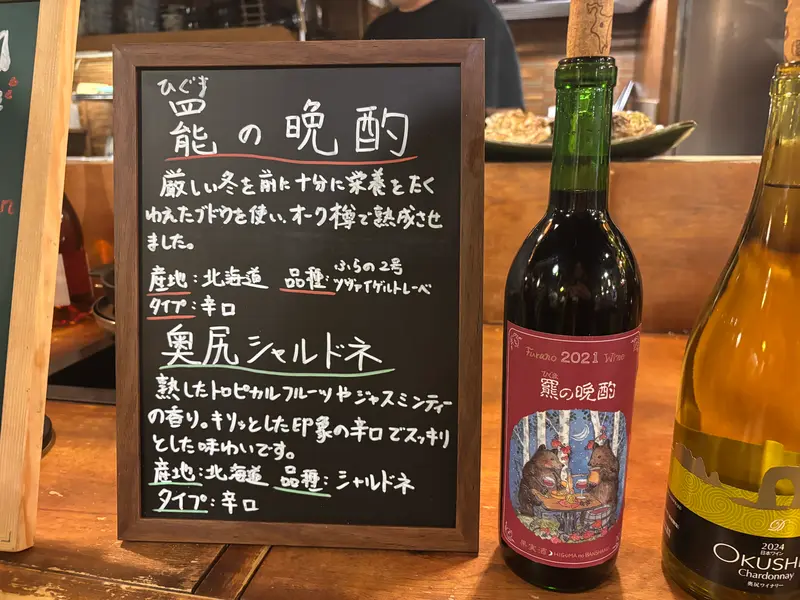 ひぐま
羆の晩酌
厳しい冬を前に十分に栄養をたく
わえたブドウを使い、オーク樽で熟成させ
ました。
産地：北海道 品種：ふらの2号
ツヴァイゲルトレーベ
タイプ：辛口
奥尻シャルドネ
熟したトロピカルフルーツやジャスミンティー
の香り。キリッとした印象の辛口でスッキリ
とした味わいです。
産地：北海道 品種：シャルドネ
タイプ：辛口
Furano 2021 Wine
ひぐま
羆の晩酌
果実酒 HIGUMA no BANSHAKU
D
2024
日本ワイン
OKUSHI
Chardonnay
奥尻ワイナリー